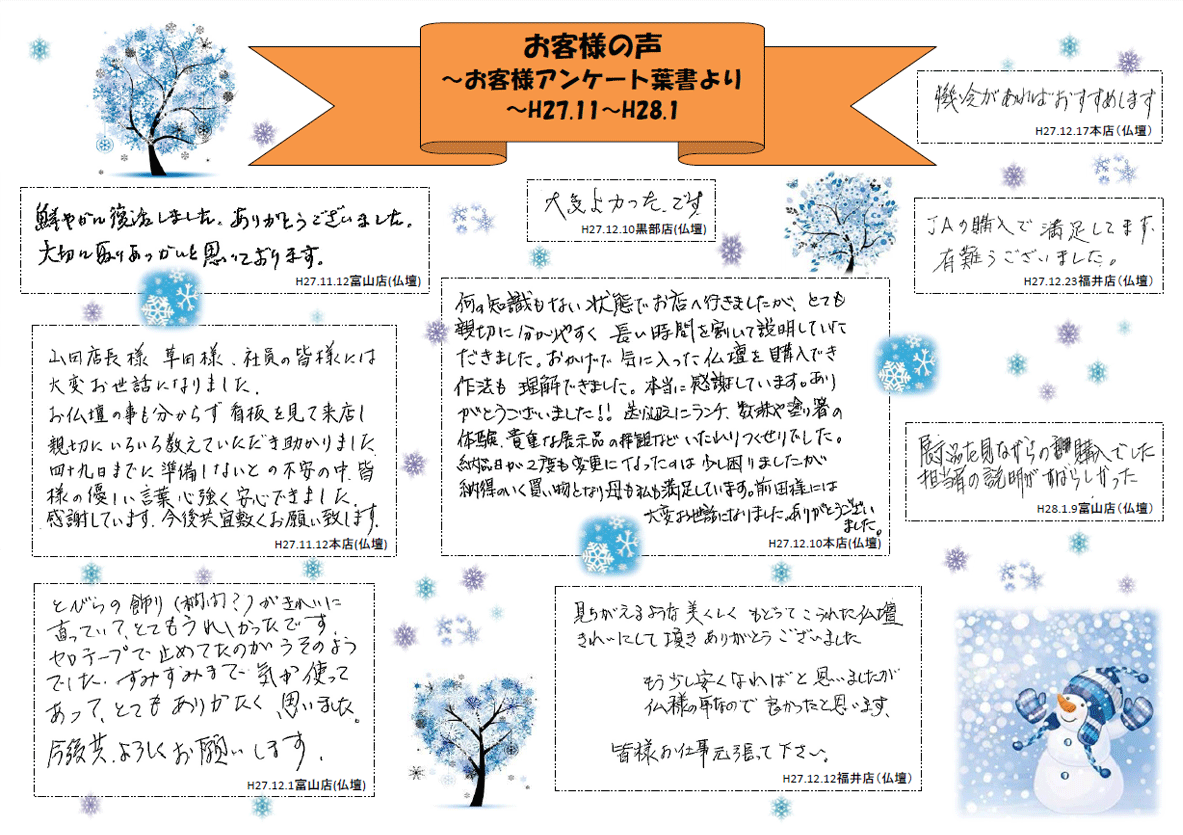 お客様の声
～お客様アンケート葉書より
～H27.11～H28.1
機会があればおすすめします
H27.12.17本店（仏壇）
鮮やかに復活しました。ありがとうございました。
大切に取りあつかいと思いております。
H27.11.12富山店(仏壇)
大変よかった。です
H27.12.10黒部店(仏壇)
JAの購入で満足してます。
有難うございました。
H27.12.23福井店（仏壇）
山田店長様 草田様、社員の皆様には
大変お世話になりました。
お仏壇の事も分からず看板を見て来店し
親切にいろいろ教えていただき助かりました
四十九日までに準備しないとの不安の中、皆
様の優しい言葉、心強く安心できました。
感謝しています。今後共宜敷くお願い致します。
H27.11.12本店(仏壇)
何の知識もない状態でお店へ行きましたが、とても
親切に分かりやすく長い時間を割いて説明していた
だきました。おかげで気に入った仏壇を購入でき
作法も理解できました。本当に感謝しています。あり
がとうございました!! 送迎にランチ、数珠や塗り箸の
体験、貴重な展示品の拝観などいたれりつくせりでした。
納品日が2度も変更になったのは少し困りましたが
納得のいく買い物となり母も私も満足しています。前田様には
大変お世話になりました。ありがとうござい
ました。
H27.12.10本店(仏壇)
展示品を見ながらの購入でした
担当者の説明がすばらしかった
H28.1.9富山店（仏壇）
とびらの飾り(欄間?)がきれいに
直っていて、とてもうれしかったです。
セロテープで止めてたのがうそのよう
でした。すみずみまで気が使って
あって、とてもありがたく思いました。
今後共、よろしくお願いします。
H27.12.1富山店(仏壇)
見ちがえるような美くしくもどってこられた仏壇
きれいにして頂きありがとうございました
もう少し安くなればと思いましたが
仏様の事なので良かったと思います。
皆様お仕事元張って下さい。
H27.12.12福井店（仏壇）